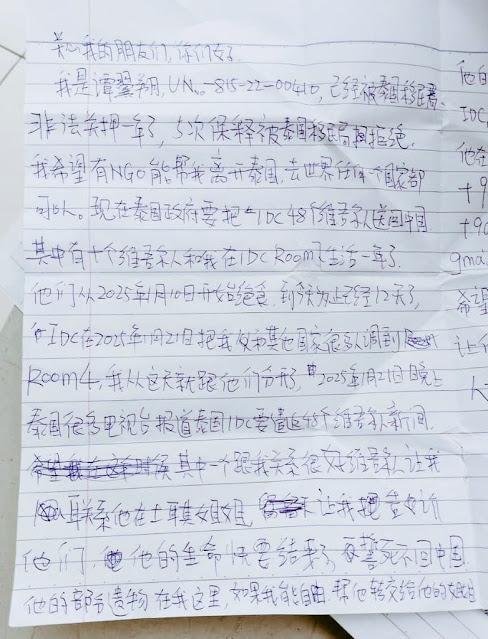 关心我的朋友们,你们好
我是谭翼翔,UN。-815-22-00410,已经被泰国移民局
非法关押一年了,5次保释被泰国移民局拒绝.
我希望有NGO能帮我离开泰国,去世界任何个国家都
可以。现在泰国政府要把IDC48个维吾尔人送回中国
其中有十个维吾尔人和我在IDC Room 生活一年了.
他们从2025年1月10日开始绝食,到今天为止已经12天了,
IDC在2025年1月21日把我以和其他国家很多人调到
Room4,我从这天就跟他们分开了,2025年1月21日晚上
泰国很多电视台报道泰国IDC要遣返48个维吾尔人新闻.
其中一个跟我关系很好维吾尔人让我
联系他在土耳其姐姐 让我把告诉
他们,他的生命快要结束了,誓死不回中国.
他的部分遗物在我这里,如果我能自由,帮他转交给他的姐姐
他的
IDC,
他在
+9
+90
gmai
希望
让